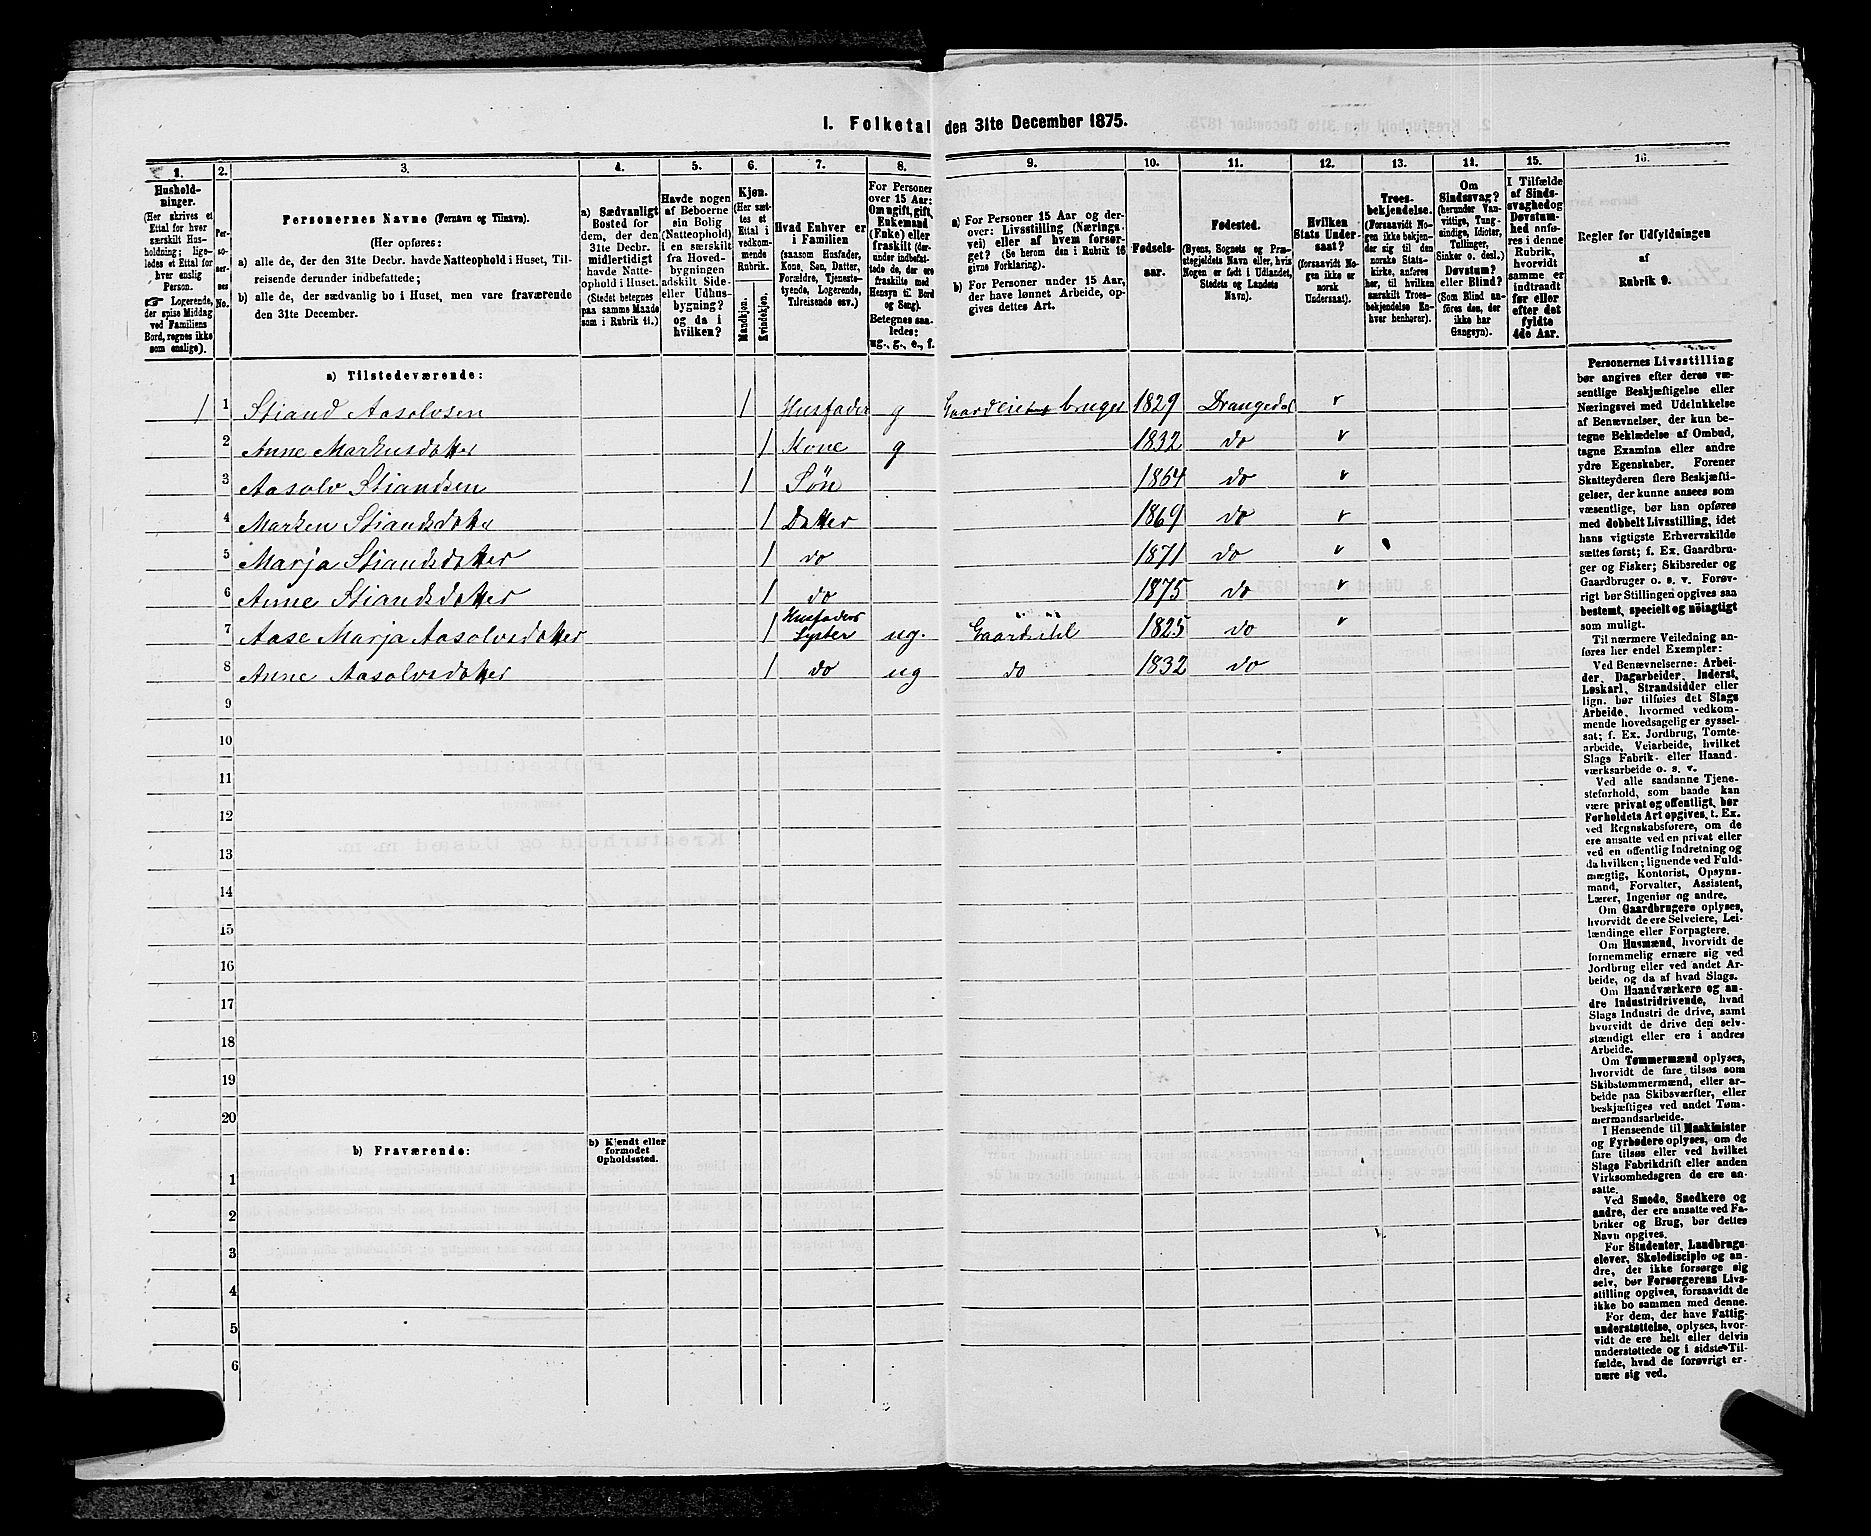 I. Folketal den 31te December 1875.
1. 2. 3. 4. 5. 6. 7. 8. 9. 10. 11. 12. 13. 14. 15. 16.
Hushold-
ninger.
(Her skrives et
Ettal for hver
særskilt Hus-
holdning; lige-
ledes et Ettal for
hver enslig
Person.
☞ Logerende,
der spise Middag
ved Familiens
Bord, regnes ikke
som enslige).
Per-
so-
ner-
nes
No.
Personernes Navne (Fornavn og Tilnavn).
(Her opføres:
a) alle de, der den 31te Decbr. havde Natteophold i Huset, Til-
reisende derunder indbefattede;
b) alle de, der sædvanlig bo i Huset, men vare fraværende
den 31te December.
a) Sædvanligt
Bosted for
dem, der den
31te Decbr.
midlertidigt
havde Natte-
ophold i Huset.
(Stedet betegnes
paa samme Maade
som i Rubrik 11.)
Havde nogen
af Beboerne
sin Bolig
(Natteophold)
i en særskilt
fra Hoved-
bygningen
adskilt Side-
eller Udhus-
bygning?
og da i
hvilken?
Kjøn.
(Her sæt-
tes et
Ettal i
vedkom-
mende
Rubrik.
Mandkjøn.
Kvindekjøn.
Hvad Enhver er
i Familien
(saasom Husfader,
Kone, Søn, Datter,
Forældre, Tjeneste-
tyende, Logerende,
Tilreisende osv.)
For Personer
over 15 Aar:
Om ugift, gift,
Enkemand
(Enke) eller
fraskilt (der-
under indbefat-
tede de, der ere
fraskilte med
Hensyn til Bord
og Seng).
Betegnes saa-
ledes:
ug., g., e., f.
a) For Personer 15 Aar og der-
over: Livsstilling (Nærings-
vei) eller af hvem forsør-
get? (Se herom den i Rubrik 16
givne Forklaring).
b) For Personer under 15 Aar,
der have lønnet Arbeide, op-
gives dettes Art.
Fødsels-
aar.
Fødested.
(Byens, Sognets og Præ-
stegjeldets Navn eller, hvis
Nogen er født i Udlandet,
Stedets og Landets
Navn).
Hvilken
Stats Under-
saat?
(forsaavidt No-
gen ikke er
norsk
Undersaat).
Troes-
bekjendelse.
(Forsaavidt No-
gen ikke bekjen-
der sig til den
norske Stats-
kirke, anføres
her, til hvilken
særskilt Troes-
bekjendelse En-
hver henhører).
Om
Sindssvag?
(herunder Van-
vittige, Tung-
sindige, Idioter,
Tullinger,
Sinker o. desl.)
Døvstum?
eller Blind?
(Som Blind an-
føres den, der
ikke har
Gangsyn).
I Tilfælde
af Sinds-
svaghed og
Døvstum-
hed anfø-
res i denne
Rubrik,
hvorvidt
samme er
indtraadt
før eller
efter det
fyldte
4de Aar.
Regler for Udfyldningen
af
Rubrik 9.
a) Tilstedeværende:
1 1 Stiand Aasolvsen 1 Husfader g Gaardeier bruger 1829 Drangedal v
2 Anne Markusdatter 1 Kone g 1832 do v
3 Aasolv Stiandsen 1 Søn 1864 do v
4 Marken Stiandsdatter 1 Datter 1869 do v
5 Marja Stiandsdatter 1 do 1871 do v
6 Anne Stiandsdatter 1 do 1875 do v
7 Aase Marja Aasolvsdatter 1 Husfaders Syster ug. 1825 do v
8 Anne Aasolvsdatter 1 do ug do 1832 do
9
10
11
12
13
14
15
16
17
18
19
20
b) Fraværende:
b) Kjendt eller
formodet
Opholdssted.
1
2
3
4
5
6
Personernes Livsstilling
bør angives efter deres væ-
sentlige Beskjæftigelse eller
Næringsvei med Udelukkelse
af Benævnelser, der kun be-
tegne Beklædelse af Ombud,
tagne Examina eller andre
ydre Egenskaber. Forener
Skatteyderen flere Beskjæfti-
gelser, der kunne ansees som
væsentlige, bør han opføres
med dobbelt Livsstilling, idet
hans vigtigste Erhvervskilde
sættes først; f. Ex. Gaardbru-
ger og Fisker; Skibsreder og
Gaardbruger o. s. v. Forøv-
rigt bør Stillingen opgives saa
bestemt, specielt og nøiagtigt
som muligt.
Til nærmere Veiledning an-
føres her endel Exempler:
Ved Benævnelserne: Arbei-
der, Dagarbeider, Inderst,
Løskarl, Strandsidder eller
lign. bør tilføies det Slags
Arbeide, hvormed vedkom-
mende hovedsagelig er syssel-
sat; f. Ex. Jordbrug, Tomte-
arbeide, Veiarbeide, hvilket
Slags Fabrik- eller Haand-
værksarbeide o. s. v.
Ved alle saadanne Tjene-
steforhold, som baade kan
være privat og offentligt, bør
Forholdets Art opgives, t. Ex.
ved Regnskabsførere, om de
ere ansatte ved en privat eller
ved en offentlig Indretning og
da hvilken; lignende ved Fuld-
mægtig, Kontorist, Opsyns-
mand, Forvalter, Assistent,
Lærer, Ingeniør og andre.
Om Gaardbrugere oplyses,
hvorvidt de ere Selveiere, Lei-
lændinge eller Forpagtere.
Om Husmænd, hvorvidt de
fornemmelig ernære sig ved
Jordbrug eller ved andet Ar-
beide, og da af hvad Slags.
Om Haandværkere og an-
dre Industridrivende, hvad
Slags Industri de drive, samt
hvorvidt de drive den selv-
stændigt eller ere i andres
Arbeide.
Om Tømmermænd oplyses,
hvorvidt de fare tilsøs som
Skibstømmermænd, eller ar-
beide paa Skibsværfter, eller
beskjæftiges ved andet Tøm-
mermandsarbeide.
I Henseende til Maskinister
og Fyrbødere oplyses, om de
fare tilsøs eller ved hvilket
Slags Fabrikdrift eller anden
Virksomhedsgren de ere an-
satte.
Ved Smede, Snedkere og
andre, der ere ansatte ved Fa-
briker og Brug, bør dettes
Navn opgives.
For Studenter, Landbrugs-
elever, Skoledisciple og an-
dre, der ikke forsørge sig
selv, bør Forsørgerens Livs-
stilling opgives, forsaavidt de
ikke bo sammen med denne.
For dem, der have Fattig-
understøttelse, oplyses, hvor-
vidt de ere helt eller delvis
understøttede og i sidste Til-
fælde, hvad de forøvrigt er-
nære sig ved.